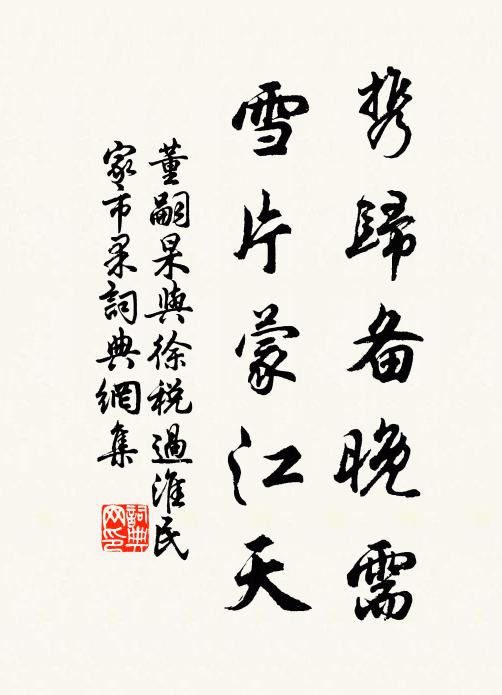 携歸备晚需
雪片蒙江天
董嗣杲與徐税過淮民
家市果詞典網集
詞典网印